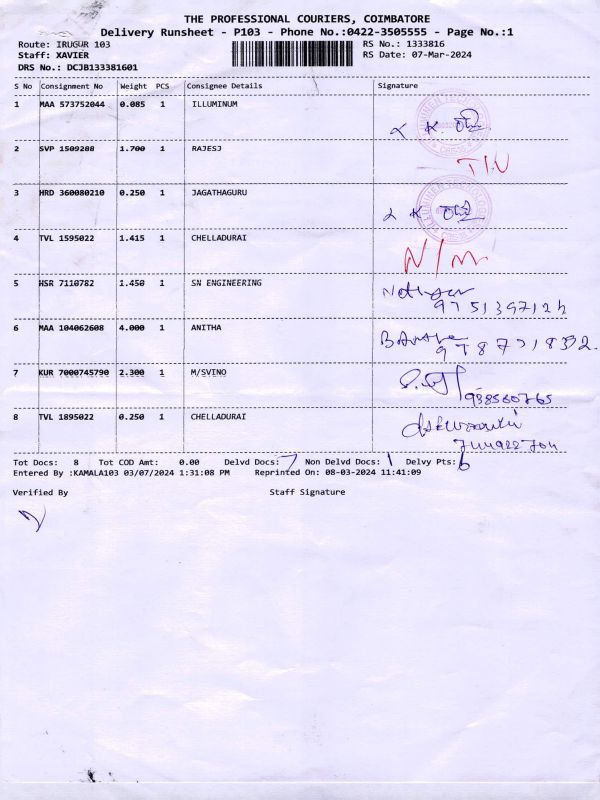 THE PROFESSIONAL COURIERS, COIMBATORE
Delivery Runsheet - P103 - Phone No.:0422-3505555 - Page No.:1
Route: IRUGUR 103 RS No.: 1333816
Staff: XAVIER RS Date: 07-Mar-2024
DRS No.: DCJB133381601
S No Consignment No Weight PCS Consignee Details Signature
1 MAA 573752044 0.085 1 ILLUMINUM
2 SVP 1509288 1.700 1 RAJESJ
3 HRD 360080210 0.250 1 JAGATHAGURU
4 TVL 1595022 1.415 1 CHELLADURAI
N/M
5 HSR 7110782 1.450 1 SN ENGINEERING
9751397124
6 MAA 104062608 4.000 1 ANITHA
7 KUR 7000745790 2.300 1 M/SVINO
8 TVL 1895022 0.250 1 CHELLADURAI
Tot Docs: 8 Tot COD Amt: 0.00 Delvd Docs: 7 Non Delvd Docs: 1 Delvy Pts: 6
Entered By :KAMALA103 03/07/2024 1:31:08 PM Reprinted On: 08-03-2024 11:41:09
Verified By Staff Signature